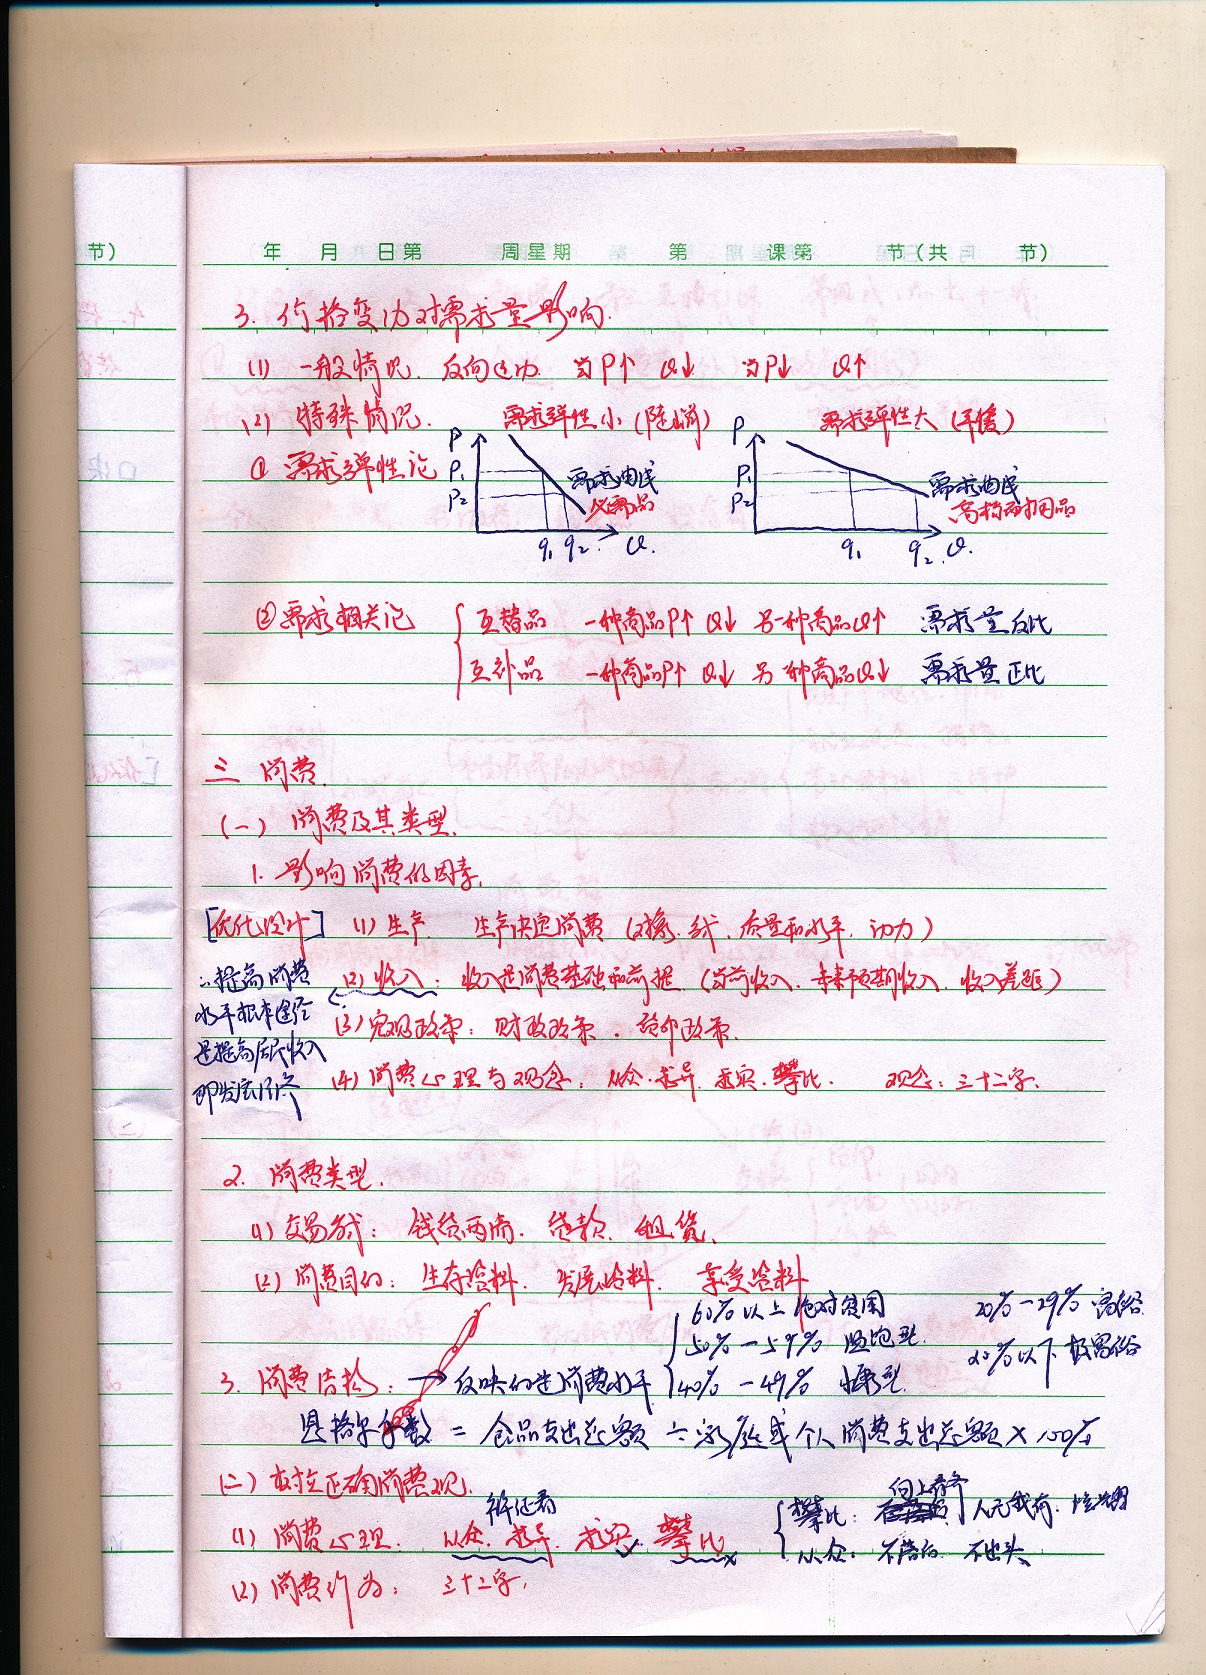 节）
年 月 日第 周星期 第 课第 节（共 节）
3. 价格变动对需求量影响.
(1) 一般情况. 反向运动 当P↑ Q↓ 当P↓ Q↑
(2) 特殊情况. 需求弹性小 (陡峭) 需求弹性大 (平缓)
① 需求弹性论
P P₁ P₂ q₁ q₂ Q. 需求曲线 必需品
P P₁ P₂ q₁ q₂ Q. 需求曲线 高档耐用品
② 需求相关论 { 互替品 一种商品P↑ Q↓ 另一种商品Q↑ 需求量反比
互补品 一种商品P↑ Q↓ 另一种商品Q↓ 需求量正比
三 消费.
(一) 消费及其类型.
1. 影响消费的因素.
[优化设计] (1) 生产. 生产决定消费 (对象. 方式. 质量和水平. 动力)
(2) 收入: 收入是消费基础和前提 (当前收入. 未来预期收入. 收入差距)
∴提高消费
水平根本途径
是提高居民收入
即发展经济
(3) 宏观政策: 财政政策. 货币政策.
(4) 消费心理与观念: 从众. 求异. 求实. 攀比. 观念: 三十二字.
2. 消费类型.
(1) 交易方式: 钱货两清. 贷款. 租赁.
(2) 消费目的: 生存资料. 发展资料. 享受资料
3. 消费结构: → 反映的是消费水平
{ 60%以上 绝对贫困
50%－59% 温饱型.
40%－49% 小康型.
20%－29% 富裕.
20%以下 极富裕
恩格尔系数 = 食品支出总额 ÷ 家庭或个人消费支出总额 × 100%
(二) 树立正确消费观.
(1) 消费心理. 从众. 求异 求实 攀比
辩证看
{ 攀比: 向上看齐 人无我有.
从众: 不落后. 不出头
(2) 消费行为: 三十二字.